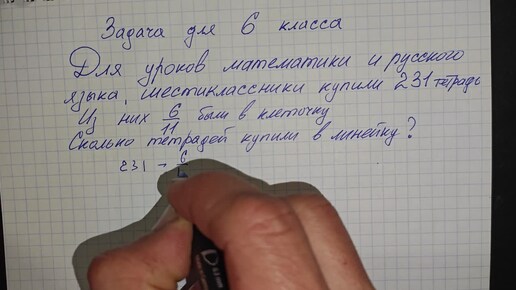 Задача для 6 класса
Для уроков математики и русского
языка, шестиклассники купили 231 тетрадь
Из них 6/11 были в клеточку
Сколько тетрадей купили в линейку?
231 - 6/